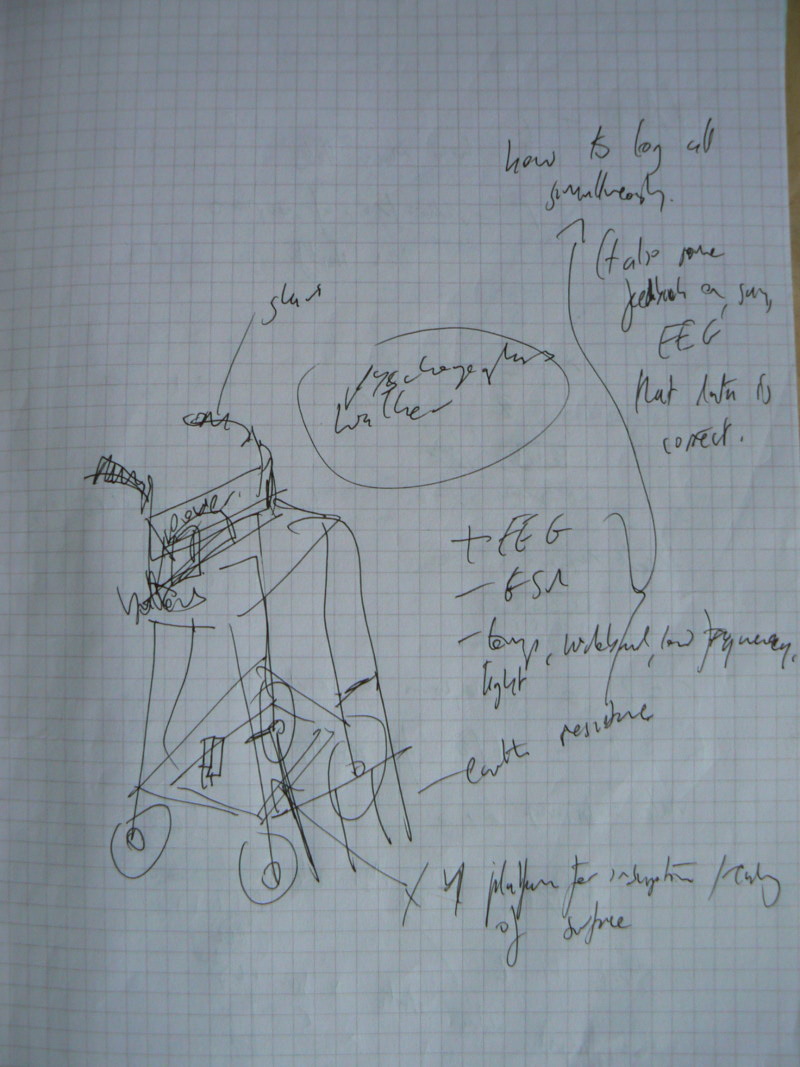 how to log all
simultaneously.
(+ also some
feedback on, say,
EEG
that data is
correct.
walker
+ EEG
- GSR
- temp, wideband, low frequency,
light
earth resistance
X Y platform for inscription /
of surface